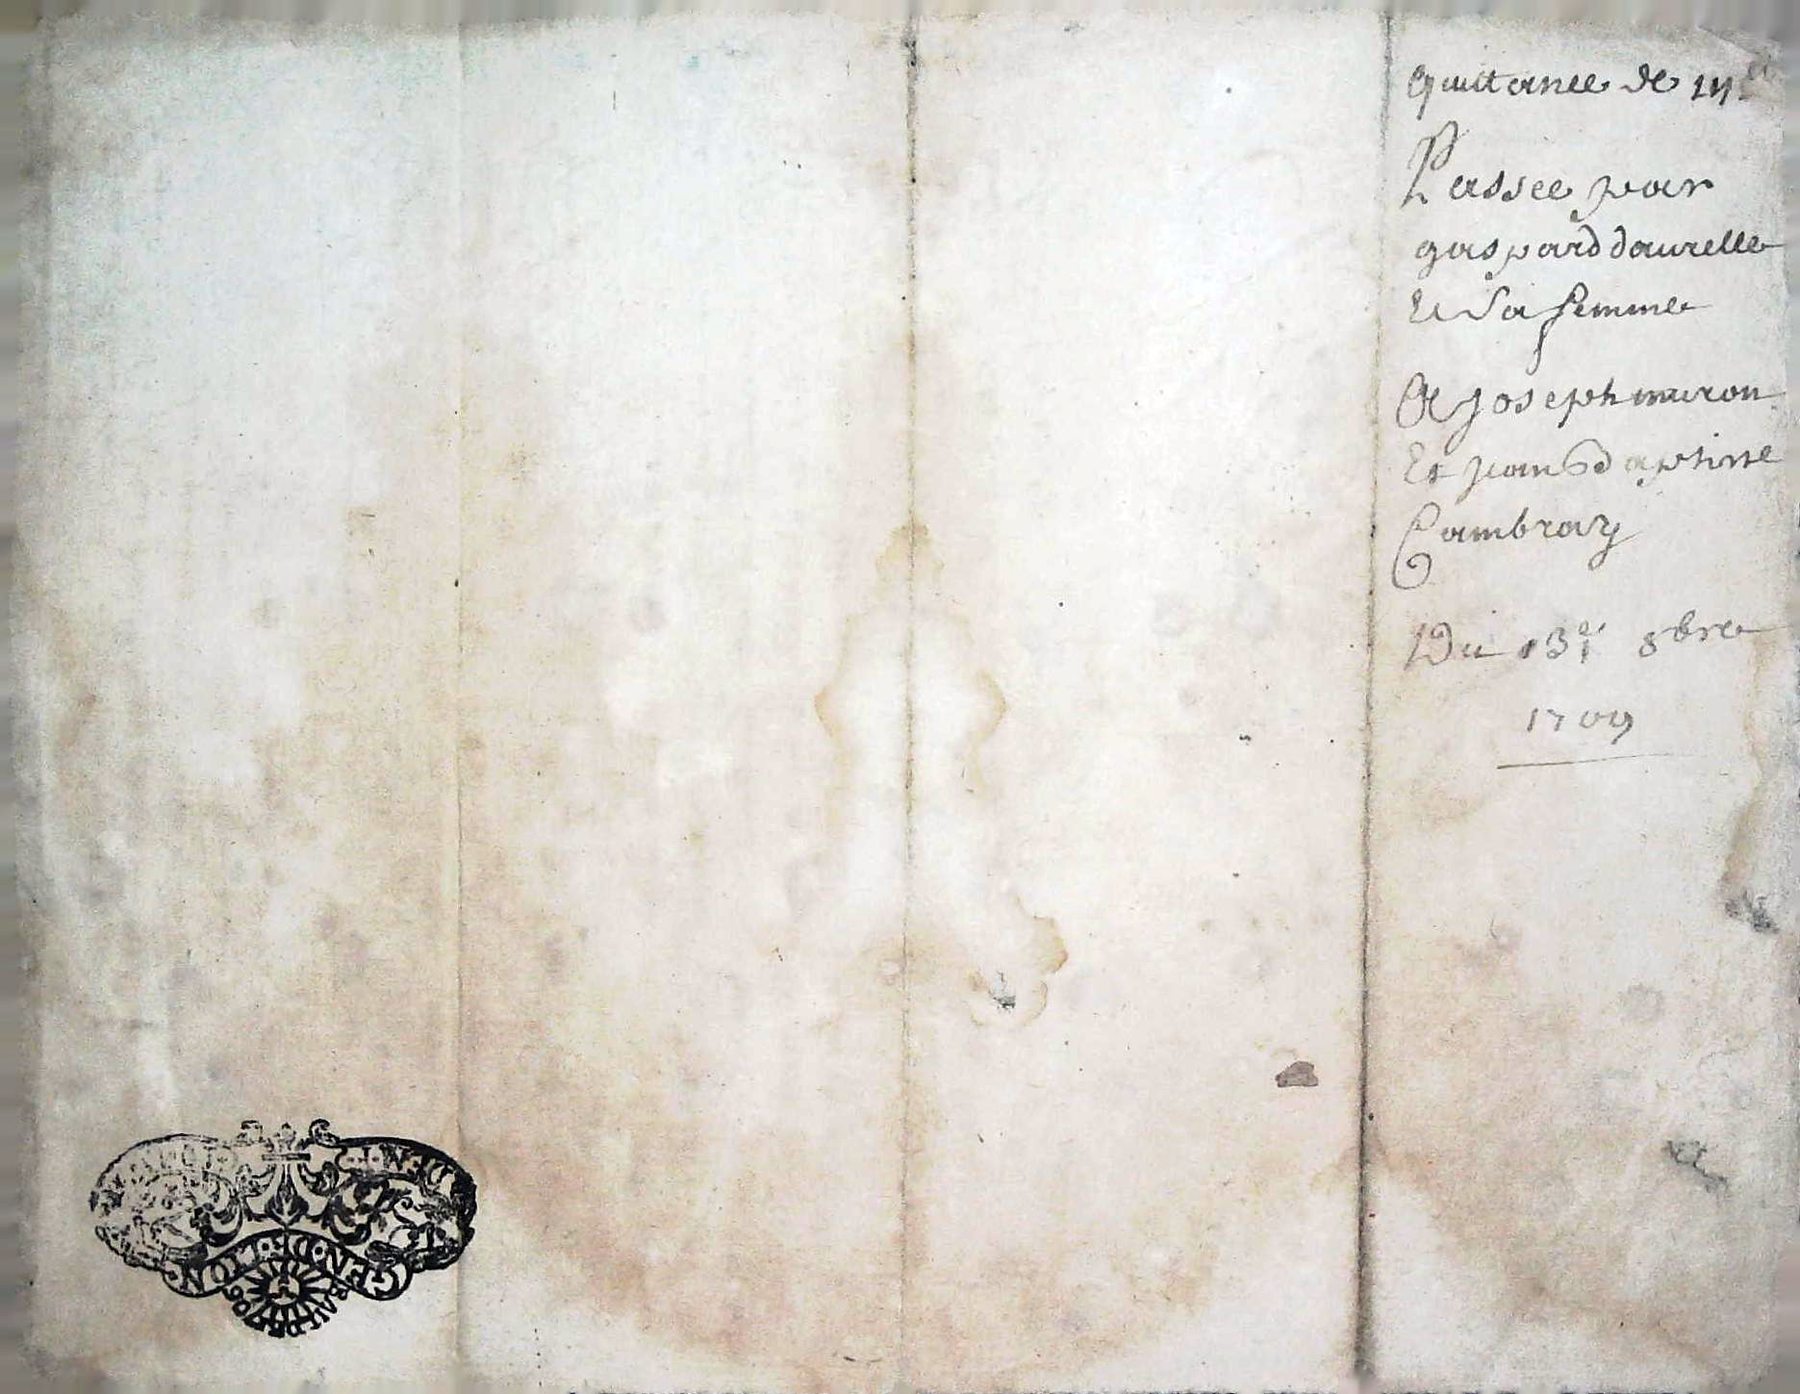 quittance de
Passee par
gaspard daurelle
Et Sa femme
A Joseph miron
Et jean baptiste
Cambray
Du 13e 8bre
1709